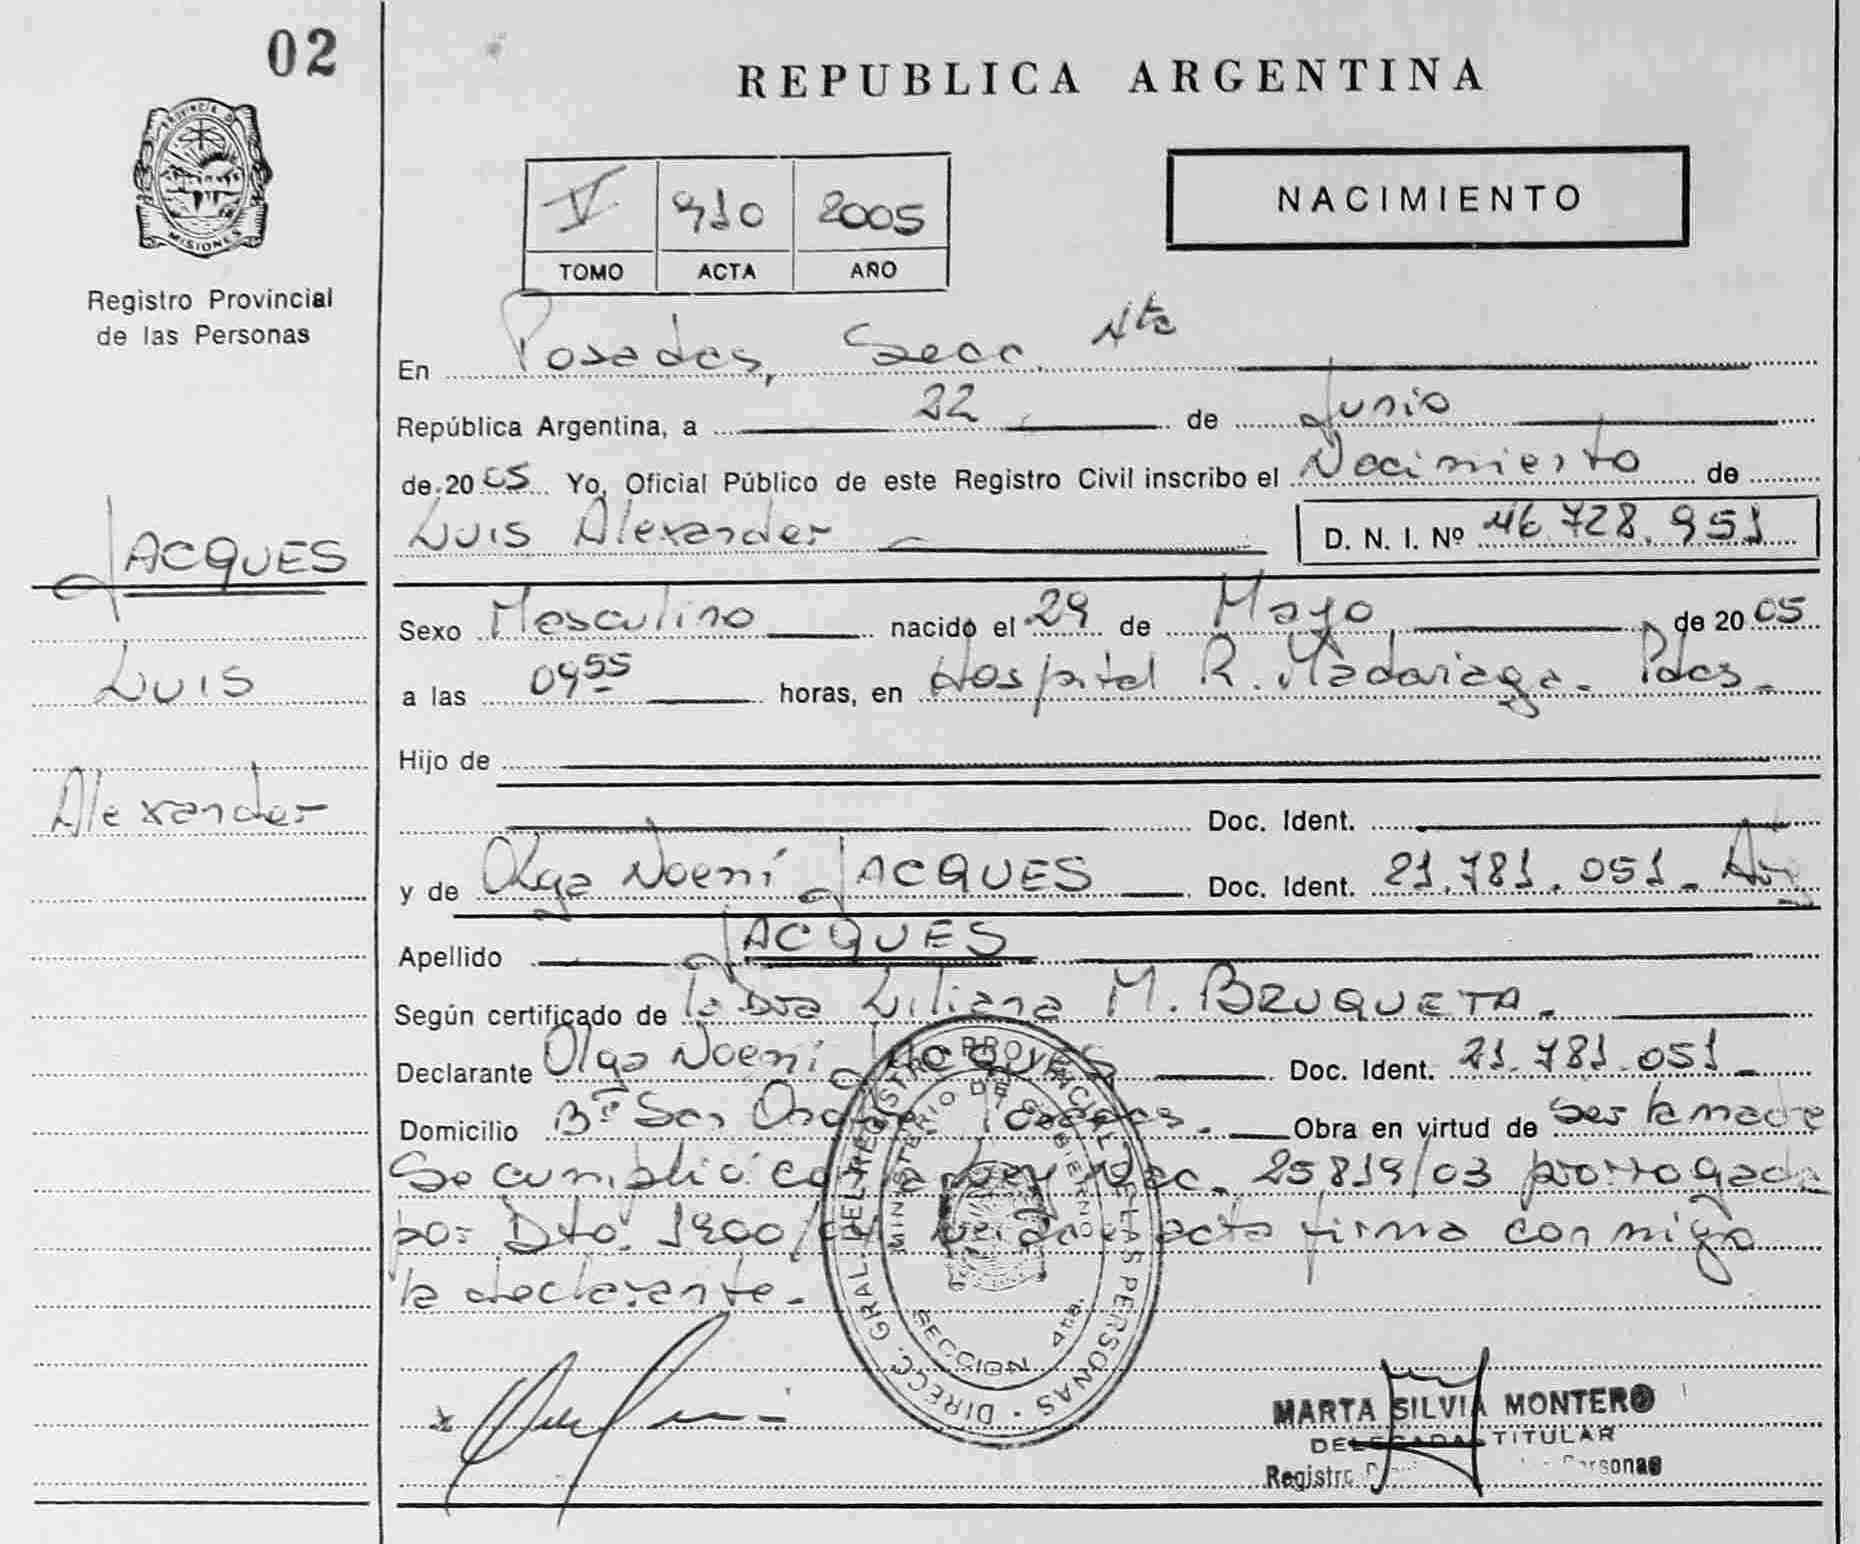 02
PROVINCIA D
MISIONES
Registro Provincial
de las Personas
JACQUES
Luis
Alexander
REPUBLICA ARGENTINA
V 910 2005
TOMO ACTA AÑO
NACIMIENTO
En Posadas, Secc. 4ta
República Argentina, a 22 de Junio
de 2005 Yo, Oficial Público de este Registro Civil inscribo el Nacimiento de
Luis Alexander D. N. I. Nº 46.728.951
Sexo Masculino nacido el 29 de Mayo de 2005
a las 0455 horas, en Hospital R. Madariaga. Pdas.
Hijo de
Doc. Ident.
y de Olga Noemí JACQUES Doc. Ident. 21.781.051. Arg
Apellido JACQUES
Según certificado de la Dra Liliana M. BRUQUETA.
Declarante Olga Noemí JACQUES Doc. Ident. 21.781.051
Domicilio Bº San Posadas. Obra en virtud de ser la madre
Se cumplió con la Ley Nac. 25819/03 prorrogada
por Dto. 1900/ acta firma conmigo
la declarante.
DIRECC. GRAL. DEL REGISTRO PROVINCIAL DE LAS PERSONAS
MINISTERIO DE GOBIERNO
SECCION 4ta.
MARTA SILVIA MONTERO
DELEGADA TITULAR
Registro Personas